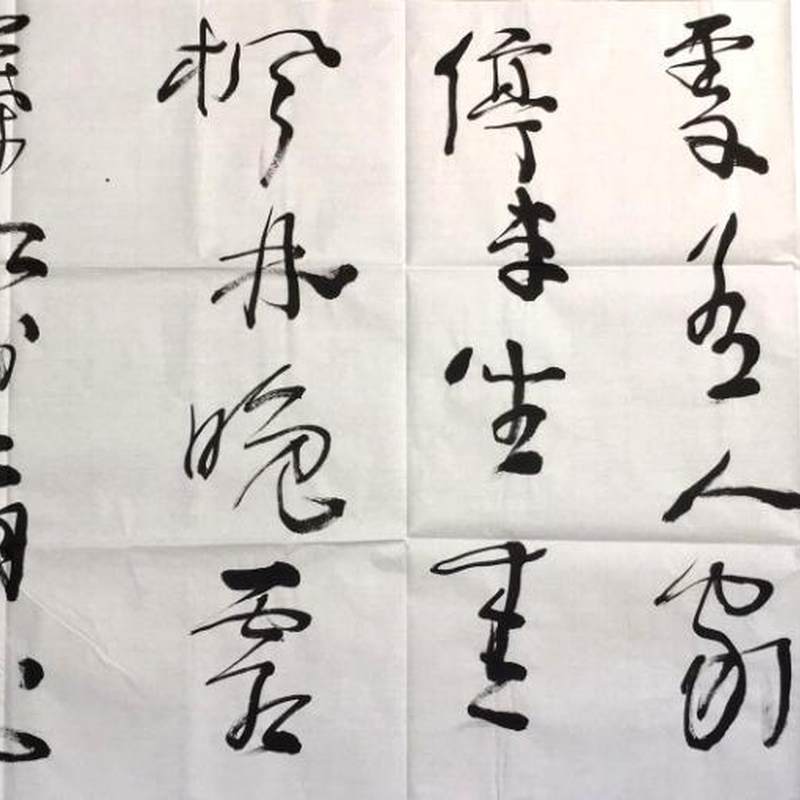 處有人家
停車坐愛
楓林晚霜
葉紅於二月花